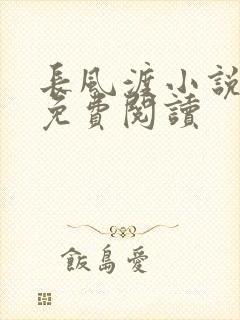 長風渡小説
免費閱讀
飯島愛